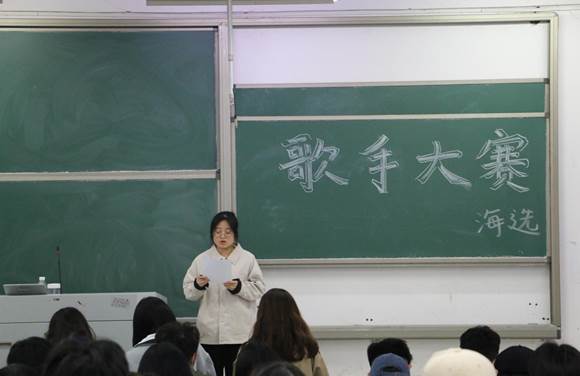 歌手大赛
海选